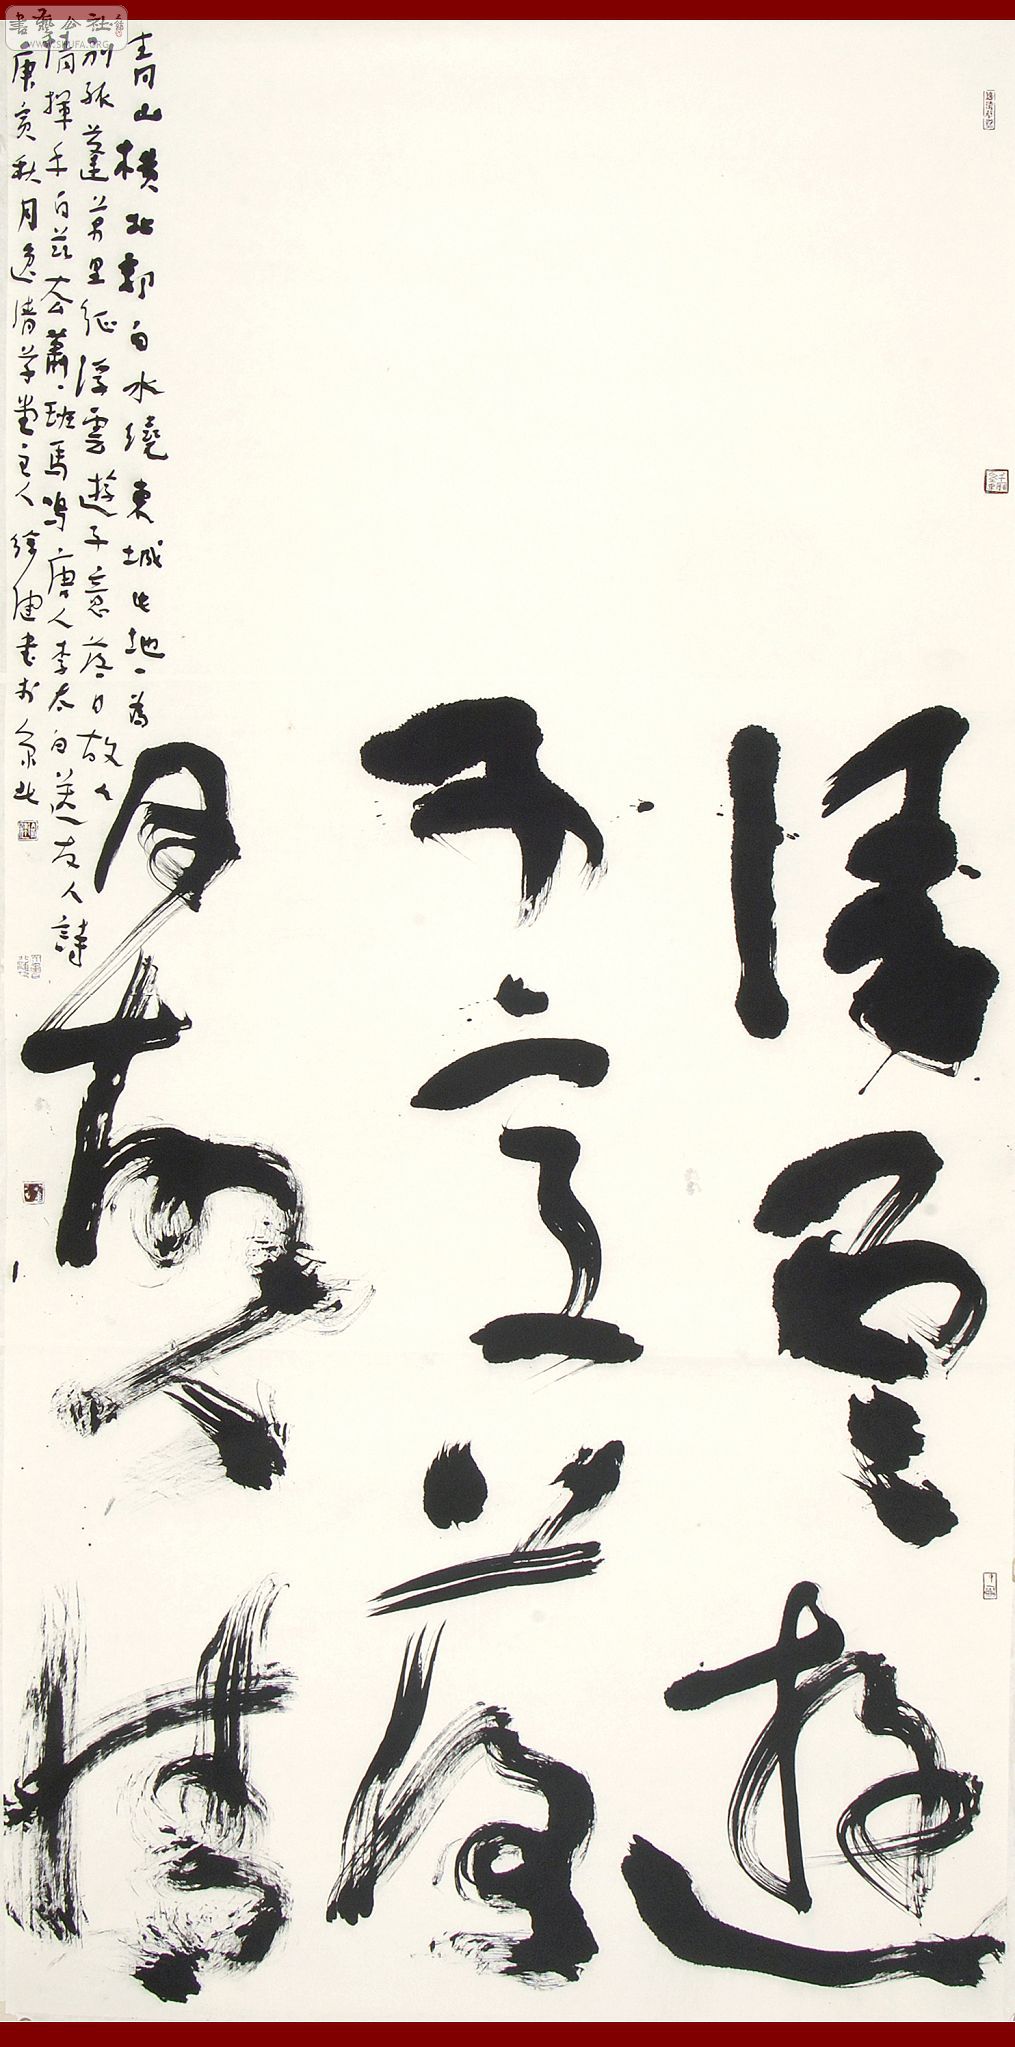 浮雲遊
子意落
日故人情
青山橫北郭白水繞東城此地一為
別孤蓬萬里征浮雲遊子意落日故人
情揮手自茲去蕭蕭班馬鳴唐人李太白送友人詩
庚寅秋月逸清草堂主人徐建書於京北
書藝公社
WWW.SHUFA.ORG